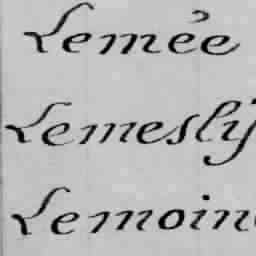 Lemée
Lemeslÿ
Lemoin